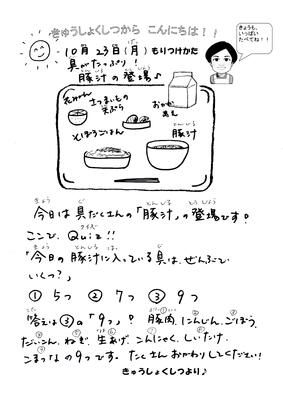 きゅうしょくしつから こんにちは！！
きょうも、
いっぱい
たべてね！！
10月23日(月) もりつけかた
具がたっぷり！
豚汁の登場♪
さつまいもの
天ぷら
おかか
あえ
そぼろごはん
豚汁
今日は具だくさんの「豚汁」の登場です。
ここで、Quiz!!
「今日の豚汁に入っている具は、ぜんぶで
いくつ？」
① 5つ ② 7つ ③ 9つ
答えは③の「9つ」！ 豚肉、にんじん、ごぼう、
だいこん、ねぎ、生あげ、こんにゃく、しいたけ、
こまつなの9つです。たくさんおかわりしてください！
きゅうしょくしつより♪